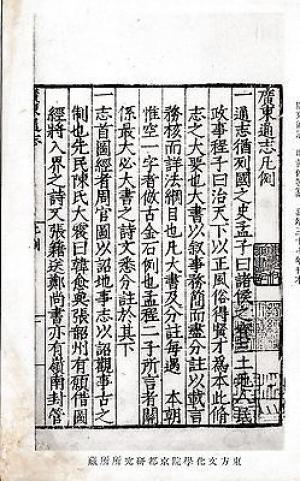 廣東通志凡例
一通志猶列國之史孟子曰諸侯之寶三土地人民
政事程子曰治天下以正風俗得賢才為本此脩
志之大要也大書以叙事務簡而盡分註以載言
務核而詳法綱目也凡大書及分註每遇 本朝
惟空一字者倣古金石例也孟程二子所言者關
係最大必大書之詩文悉分註於其下
一志首圖經者周官圖以詔地事志以詔觀事古之
制也先民陳氏大震曰韓愈與張韶州有願借圖
經將入界之詩又張籍送鄭尚書亦有嶺南封管
東方文化學院京都研究所所藏